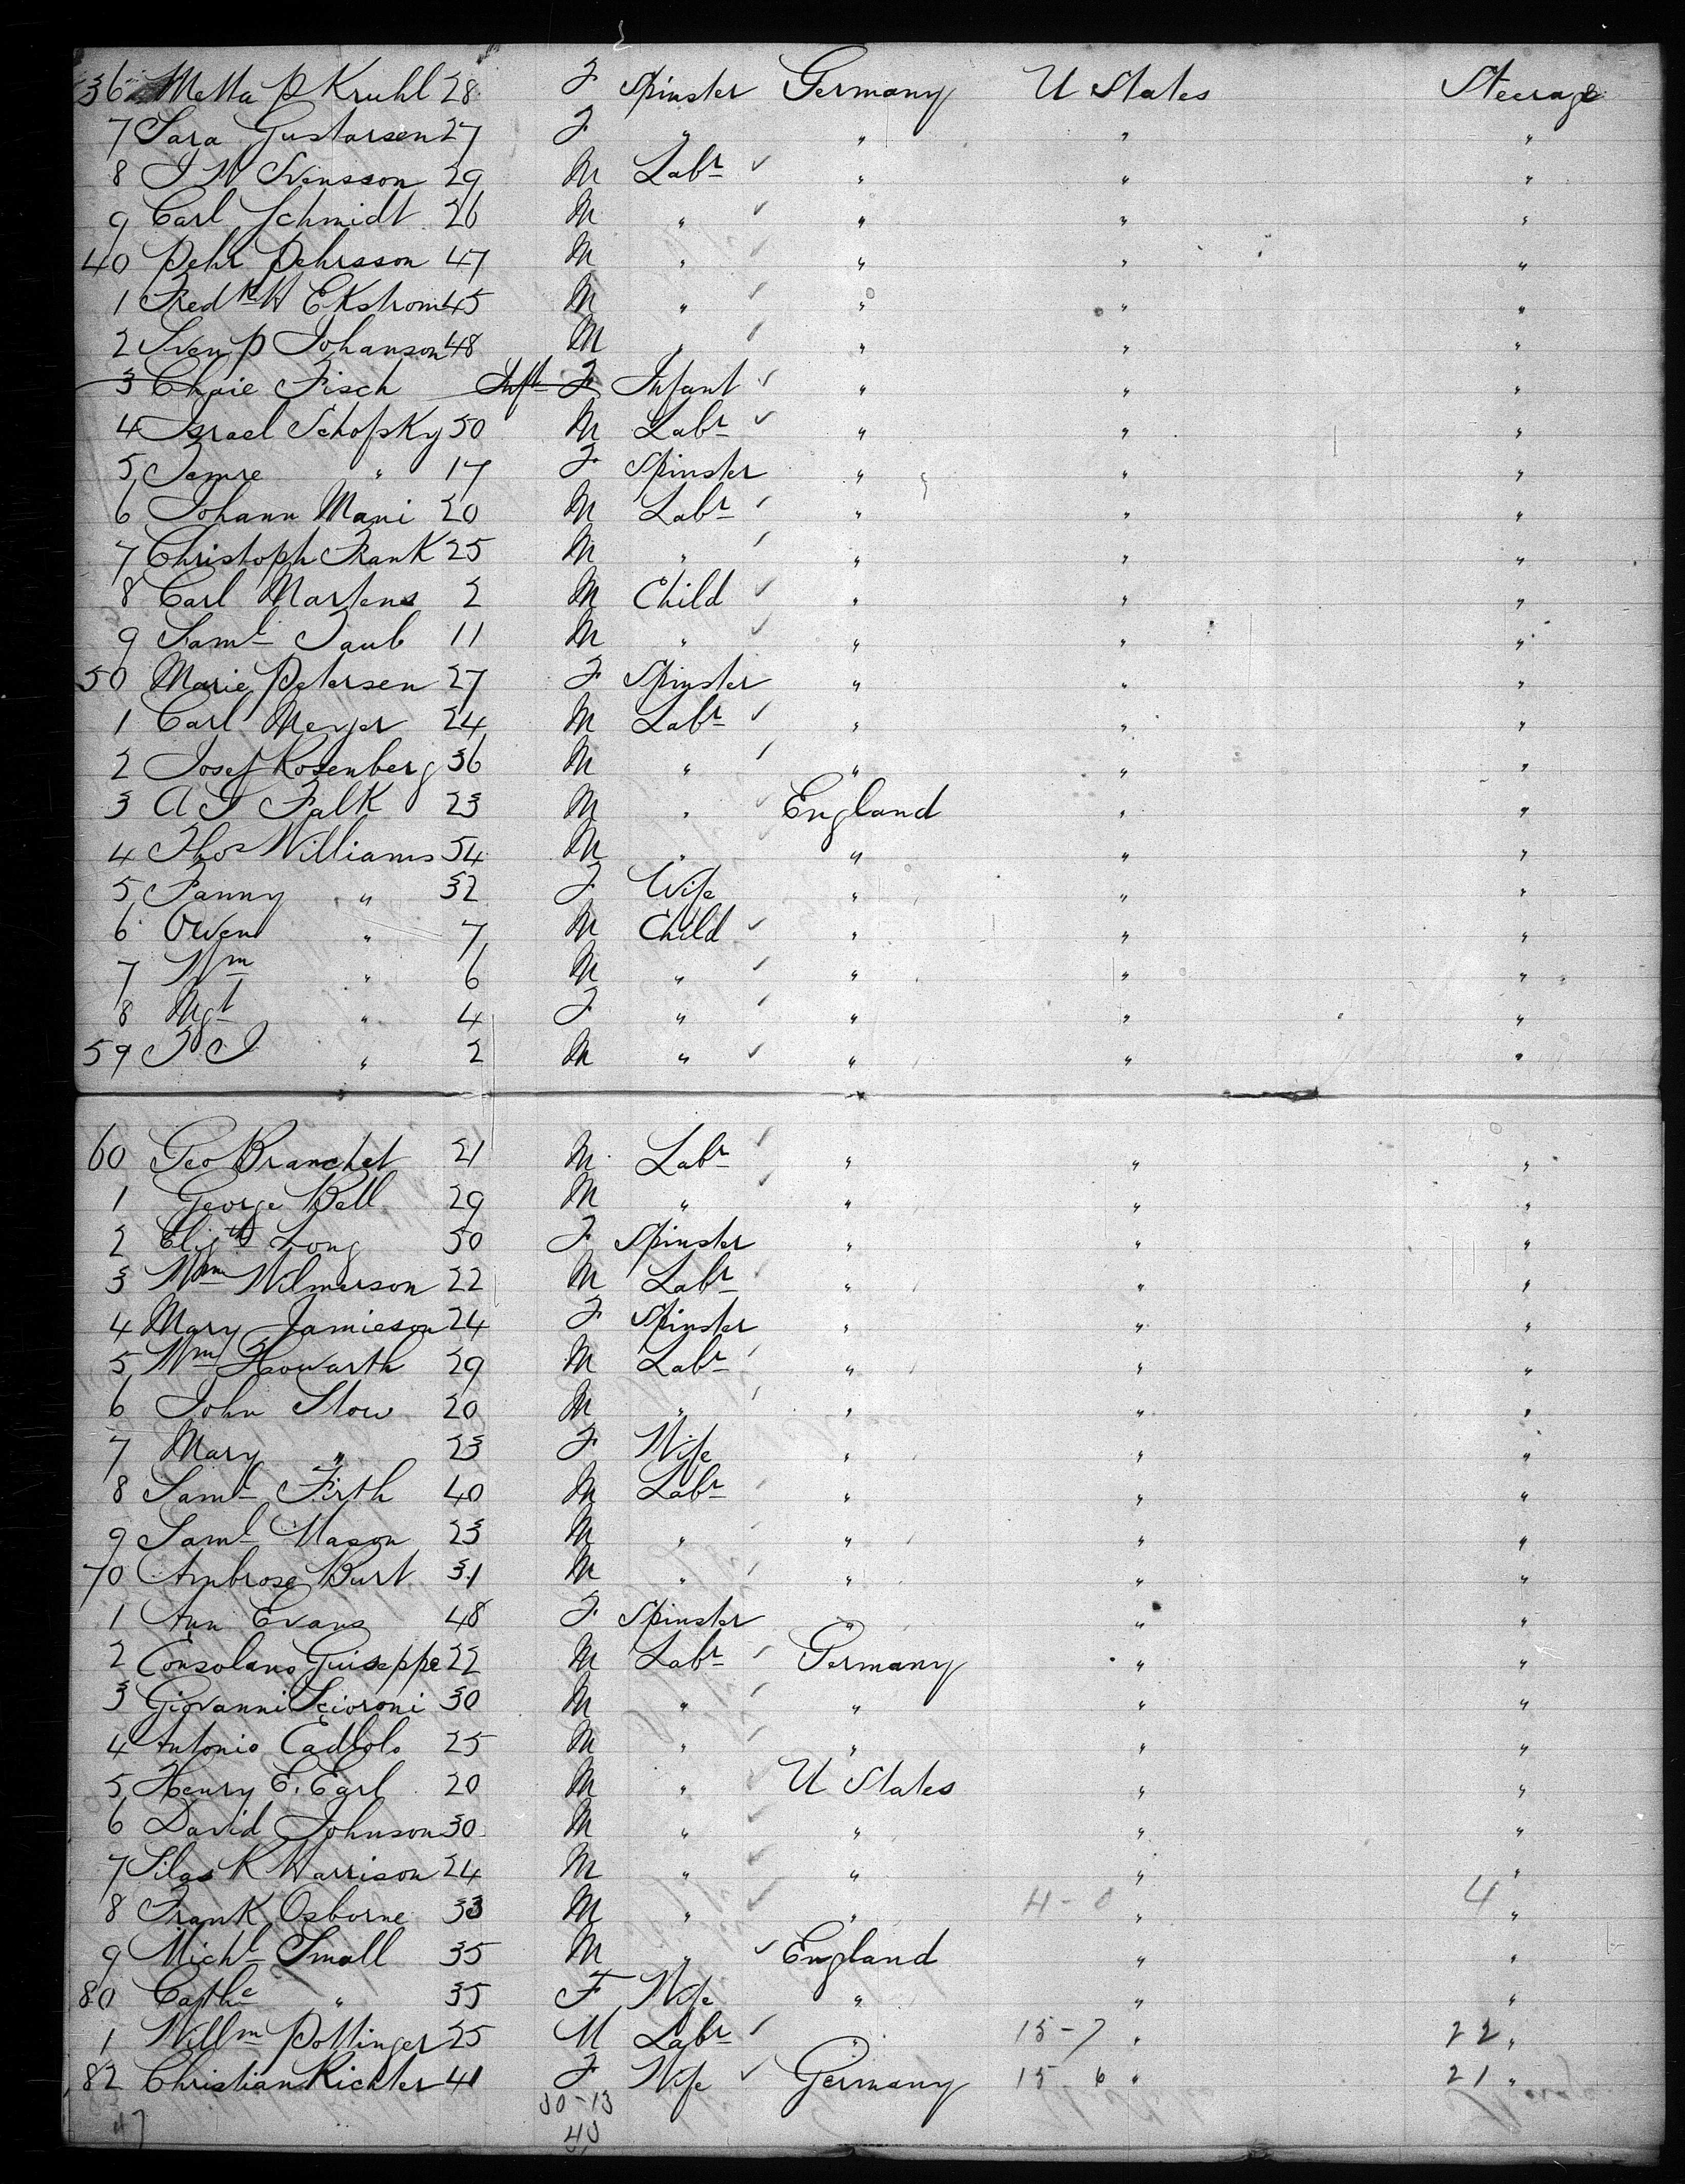 36 Metta P Kruhl 28 F Spinster Germany U States Steerage
7 Sara Gustarsen 27 F " " " "
8 J W Svensson 29 M Labr " " "
9 Carl Schmidt 26 M " " " "
40 Pehr Pehrsson 47 M " " " "
1 Fredk W Ekstrom 45 M " " " "
2 Sven P Johanson 48 M " " " "
3 Chaie Fisch Inft F Infant " " "
4 Israel Schofsky 50 M Labr " " "
5 Temre " 17 F Spinster " " "
6 Johann Mani 20 M Labr " " "
7 Christoph Frank 25 M " " " "
8 Carl Martens 2 M Child " " "
9 Saml Taub 11 M " " " "
50 Marie Petersen 27 F Spinster " " "
1 Carl Meyer 24 M Labr " " "
2 Josef Rosenberg 36 M " " " "
3 A J Falk 23 M " England " "
4 Thos Williams 54 M " " " "
5 Fanny " 32 F Wife " " "
6 Owen " 7 M Child " " "
7 Wm " 6 M " " " "
8 Mgt " 4 F " " " "
59 T J " 2 M " " " "
60 Geo Branchet 21 M Labr " " "
1 George Bell 29 M " " " "
2 Elizth Long 50 F Spinster " " "
3 Wm Wilmerson 22 M Labr " " "
4 Mary Jamieson 24 F Spinster " " "
5 Wm Howarth 29 M Labr " " "
6 John Stow 20 M " " " "
7 Mary " 23 F Wife " " "
8 Saml Firth 40 M Labr " " "
9 Saml Mason 23 M " " " "
70 Ambrose Burt 31 M " " " "
1 Ann Evans 48 F Spinster " " "
2 Consolano Guiseppe 22 M Labr Germany " "
3 Giovanni Scioroni 30 M " " " "
4 Antonio Cadlolo 25 M " " " "
5 Henry E. Earl 20 M " U States " "
6 David Johnson 30 M " " " "
7 Silas K Warrison 24 M " " " "
8 Frank Osborne 33 M " " 4-0 " 4 "
9 Michl Small 35 M " England " "
80 Cathe " 35 F Wife " " "
1 Willm Pottinger 25 M Labr " 15-7 " 22 "
82 Christian Richter 41 F Wife Germany 15 6 " 21 "
30-13
47